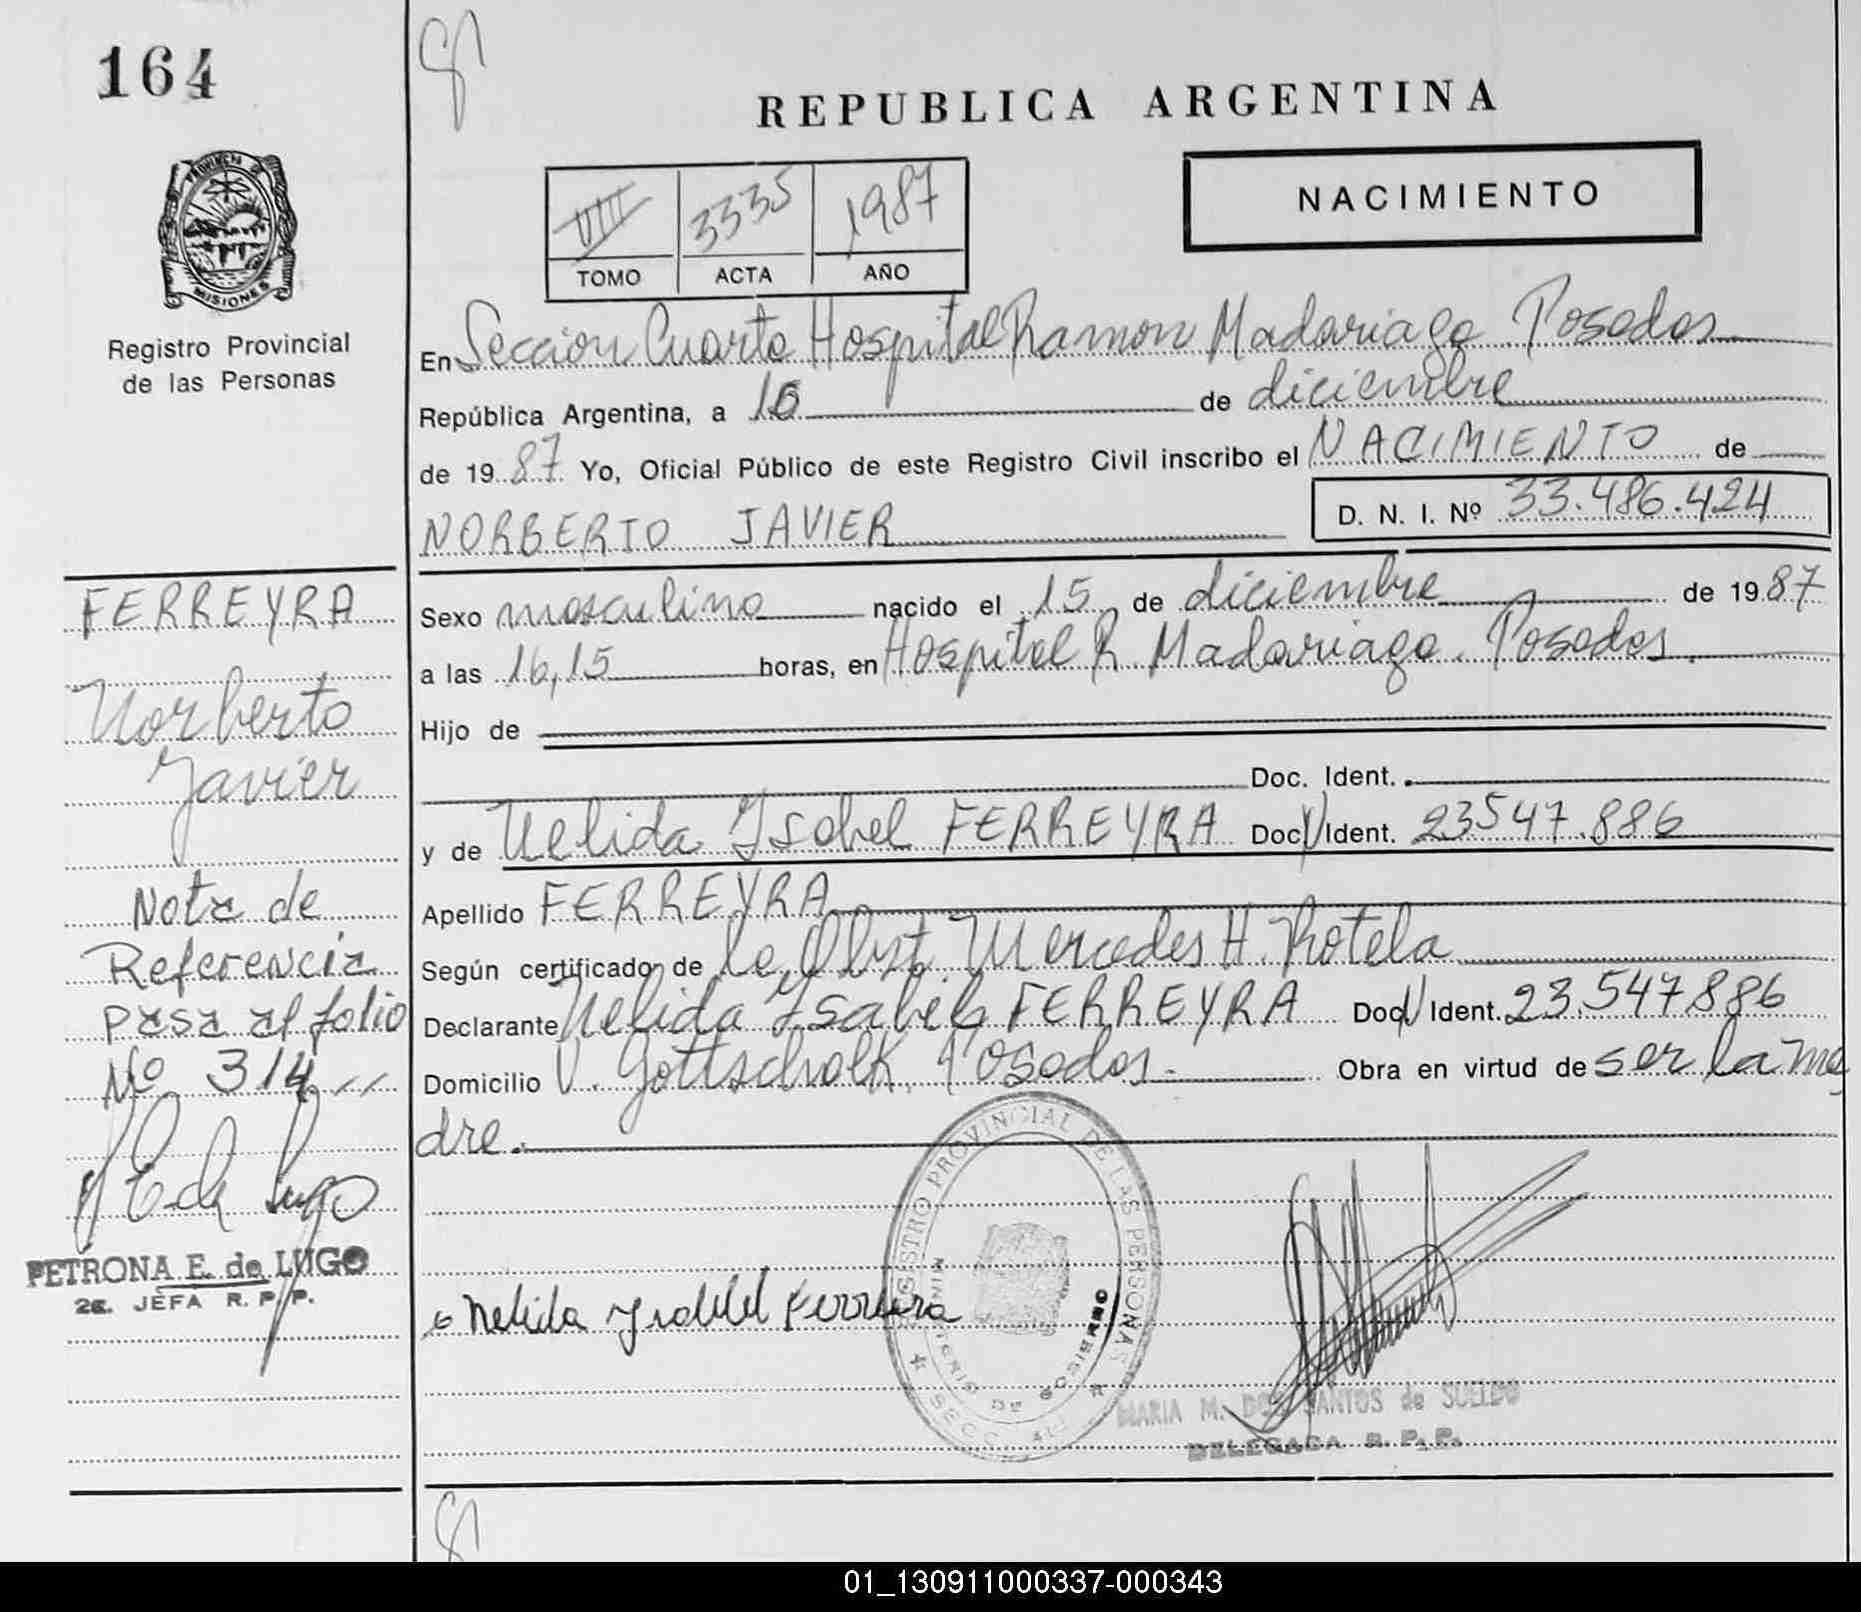 164
REPUBLICA ARGENTINA
PROVINCIA DE
MISIONES
Registro Provincial
de las Personas
VIII 3335 1987
TOMO ACTA AÑO
NACIMIENTO
En Sección Cuarta Hospital Ramon Madariaga Posadas
República Argentina, a 16 de diciembre
de 1987 Yo, Oficial Público de este Registro Civil inscribo el NACIMIENTO de
NORBERTO JAVIER D. N. I. Nº 33.486.424
FERREYRA
Norberto
Javier
Nota de
Referencia
pasa al folio
Nº 314
PETRONA E. de LUGO
2a. JEFA R. P. P.
Sexo masculino nacido el 15 de diciembre de 1987
a las 16,15 horas, en Hospital R. Madariaga. Posadas.
Hijo de
Doc. Ident.
y de Nelida Isabel FERREYRA Doc. Ident. 23547.886
Apellido FERREYRA
Según certificado de la Obst. Mercedes H. Rotela
Declarante Nelida Isabel FERREYRA Doc. Ident. 23.547.886
Domicilio V. Gottschalk. Posadas.- Obra en virtud de ser la ma
dre.
REGISTRO PROVINCIAL DE LAS PERSONAS
MINISTERIO DE GOBIERNO
SECC. 4ta
Nelida Isabel Ferreira
MARIA M. DOS SANTOS de SUELDO
DELEGADA R. P. P.
01_130911000337-000343